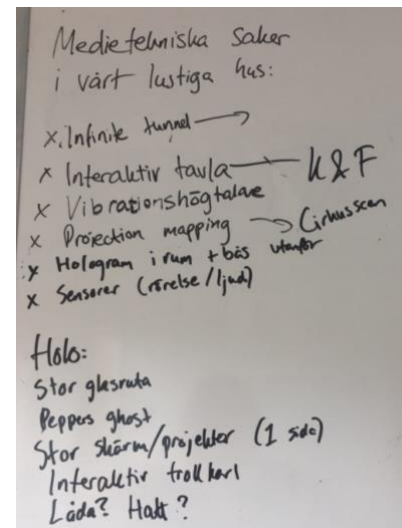 Medietekniska saker
i vårt lustiga hus:
x. Infinite tunnel →
x Interaktiv tavla — K & F
x Vibrationshögtalare
x Projection mapping → Cirkusscen
x Hologram i rum + bås utanför
x Sensorer (rörelse/ljud)
Holo:
Stor glasruta
Peppers ghost
Stor skärm/projektor (1 sida)
Interaktiv trollkarl
Låda? Hatt?